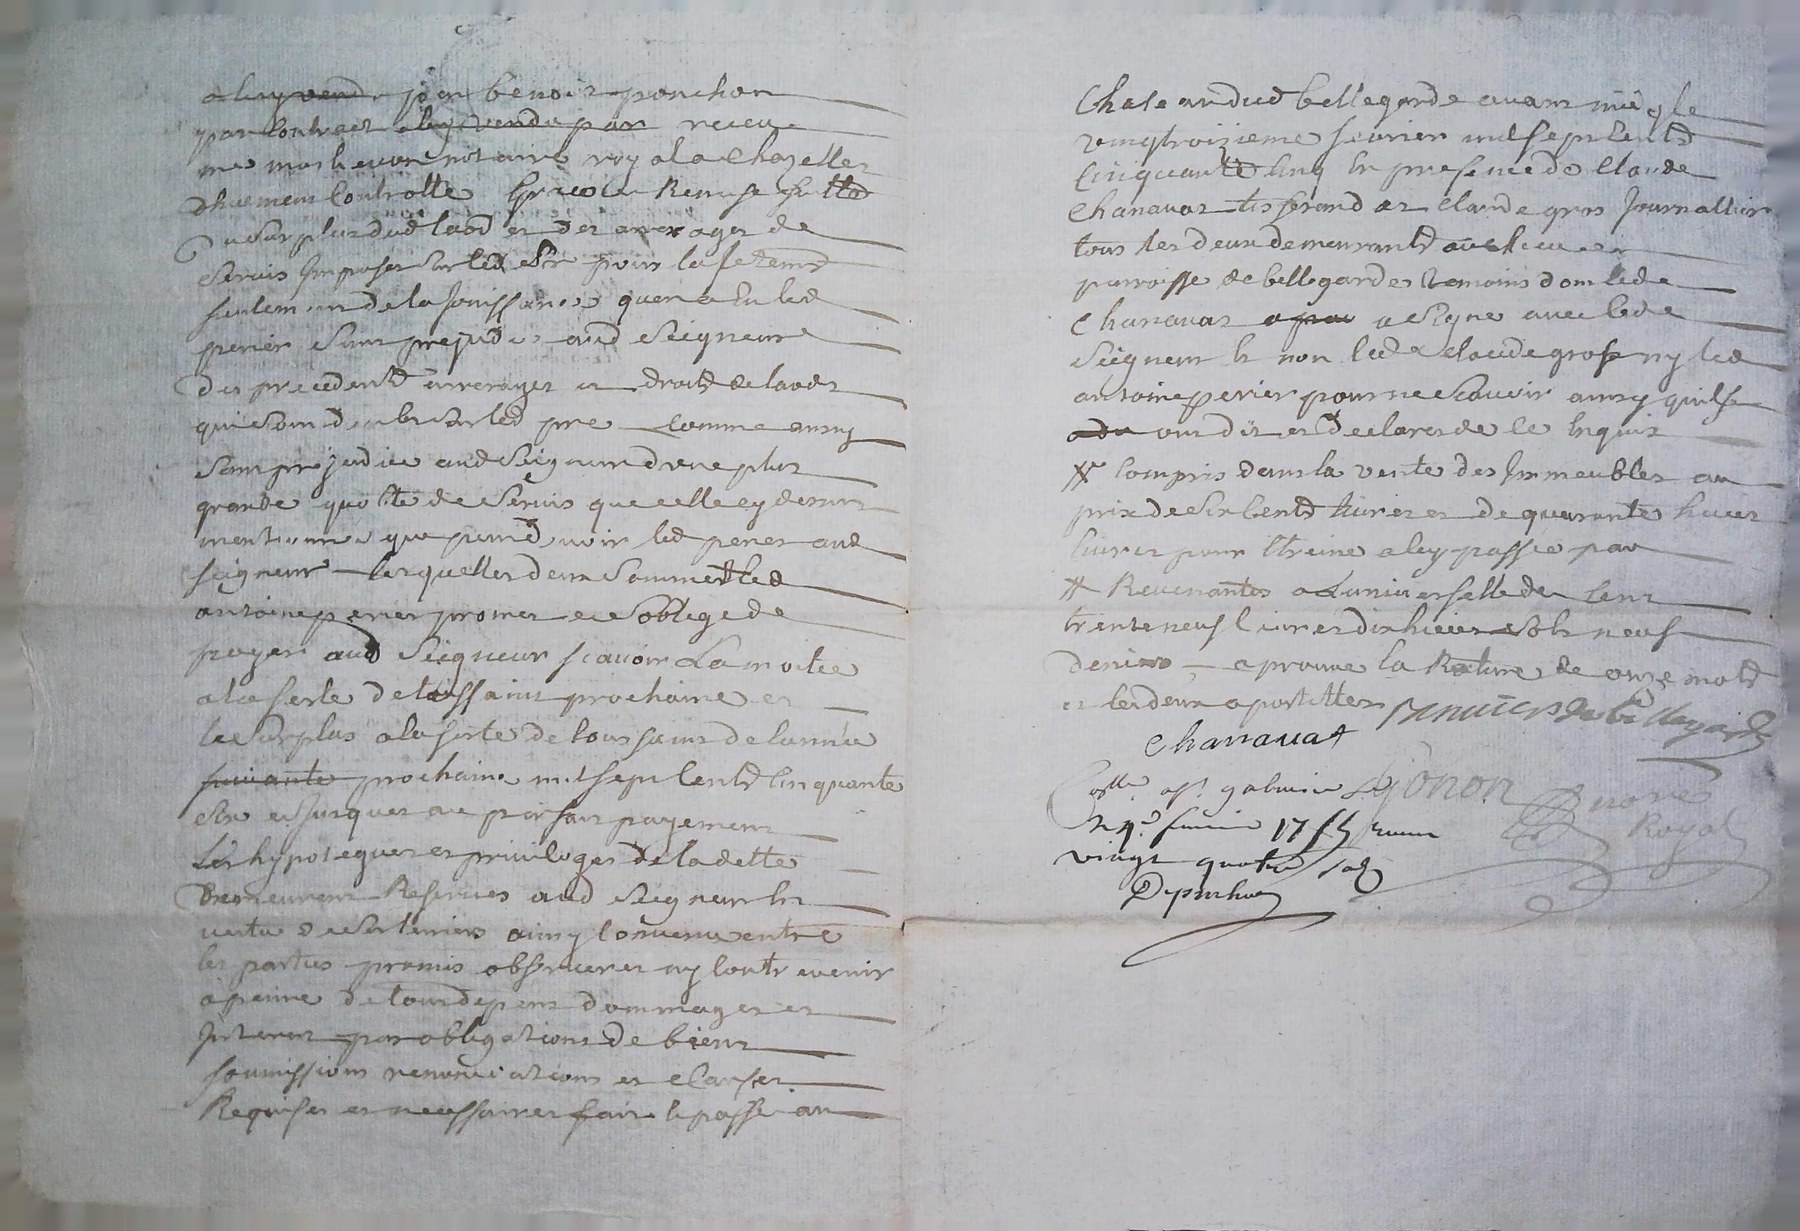 a luy vendu par benoist ponchon
par contract a luy vendu par receu
me notaire royal a Chazelles
dhuement controllé grace Remise faitte
du surplus dud laod et des arrerages de
servis imposes sur led pour
seulement de la jouissance quen a eu led
perier sans prejudice aud Seigneur
des precedents arrerages et droits de laods
qui sont deubs sur led pre comme aussy
sans prejudice aud Seigneur dune plus
grande quotité de servis que celle cy dessus
mentionnée que peut devoir led perier aud
seigneur lesquelles deux sommes led
antoine perier promet et soblige de
payer aud Seigneur scavoir La moitie
a la feste de toussaint prochaine et
le surplus a la feste de toussaint de lannée
suivante prochaine mil sept cents cinquante
six et jusques au parfait payement
Les hypoteques et privileges de la dette
demeurent Reserves aud Seigneur en
vertu de ses terriers ainsy convenu entre
les parties promis observer et ny contrevenir
a peine de tous depens dommages et
Interets par obligations de biens
soumissions renonciations et clauses
Requises et necessaires fait et passé au
Chateau dud bellegarde avant midy le
vingt troizieme fevrier mil sept cents
cinquante cinq en presence de Claude
Chanavat tisserand et claude gros Journallier
tous les deux demeurants au
parroisse de bellegarde temoins dont led
Chanavat a signé avec led
Seigneur et non led claude gros ny led
antoine perier pour ne scavoir ainsy quils
ont dit et declaré de ce enquis
# compris dans la vente des Immeubles au
prix de six cents livres et de quarante huit
livres pour etreine a luy passée par
# Revenantes a Luniverselle de cent
trente neuf livres dix huict sols neuf
deniers aprouve la Rature de onze mots
et les deux apostilles
Chanavat
Collé a st galmier Le
fevrier 1755 Receu
vingt quatre sols
Ronon
Royal